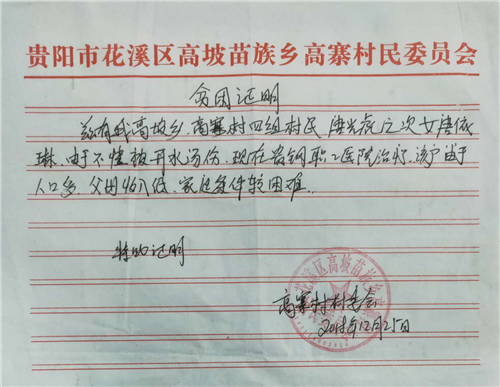 贵阳市花溪区高坡苗族乡高寨村民委员会
贫困证明
兹有我高坡乡高寨村四组村民唐光虎之次女唐依
琳，由于不慎被开水汤伤，现在贵钢职工医院治疗，该户由于
人口多，父母收入低，家庭条件较困难。
特此证明
高寨村村委会
2018年12月25日